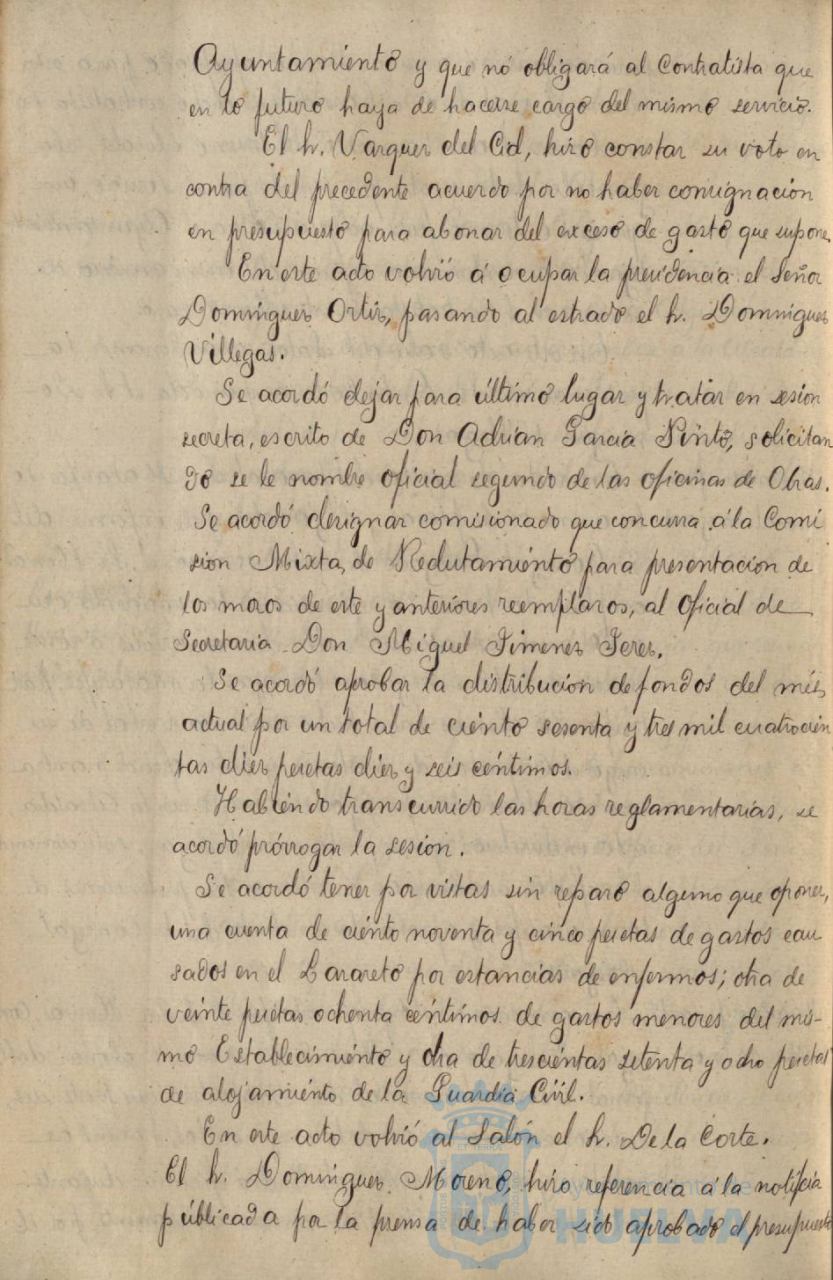 Ayuntamiento y que no obligará al contratista que
en lo futuro haya de hacerse cargo del mismo servicio.
El Sr. Vazquez del Cid, hizo constar su voto en
contra del precedente acuerdo por no haber consignacion
en presupuesto para abonar del exceso de gasto que supone.
En este acto volvió á ocupar la presidencia el Señor
Dominguez Ortiz, pasando al estrado el Sr. Dominguez
Villegas.
Se acordó dejar para último lugar y tratar en sesion
secreta, escrito de Don Adrian Garcia Pinto, solicitan
do se le nombre oficial segundo de las oficinas de Obras.
Se acordó designar comisionado que concurra á la Comi
sion Mixta de Reclutamiento para presentacion de
los mozos de este y anteriores reemplazos, al Oficial de
Secretaria Don Miguel Jimenez Perez.
Se acordó aprobar la distribucion de fondos del mes
actual por un total de ciento sesenta y tres mil cuatrocien
tas diez pesetas diez y seis céntimos.
Habiendo transcurrido las horas reglamentarias, se
acordó prórrogar la sesion.
Se acordó tener por vistas sin reparo alguno que oponer,
una cuenta de ciento noventa y cinco pesetas de gastos cau
sados en el Lazareto por estancias de enfermos; otra de
veinte pesetas ochenta céntimos de gastos menores del mis-
mo Establecimiento y otra de trescientas setenta y ocho pesetas
de alojamiento de la Guardia Civil.
En este acto volvió al Salón el Sr. De la Corte.
El Sr. Dominguez Moreno, hizo referencia á la noticia
públicada por la prensa de haber sido aprobado el presupuesto
HUELVA